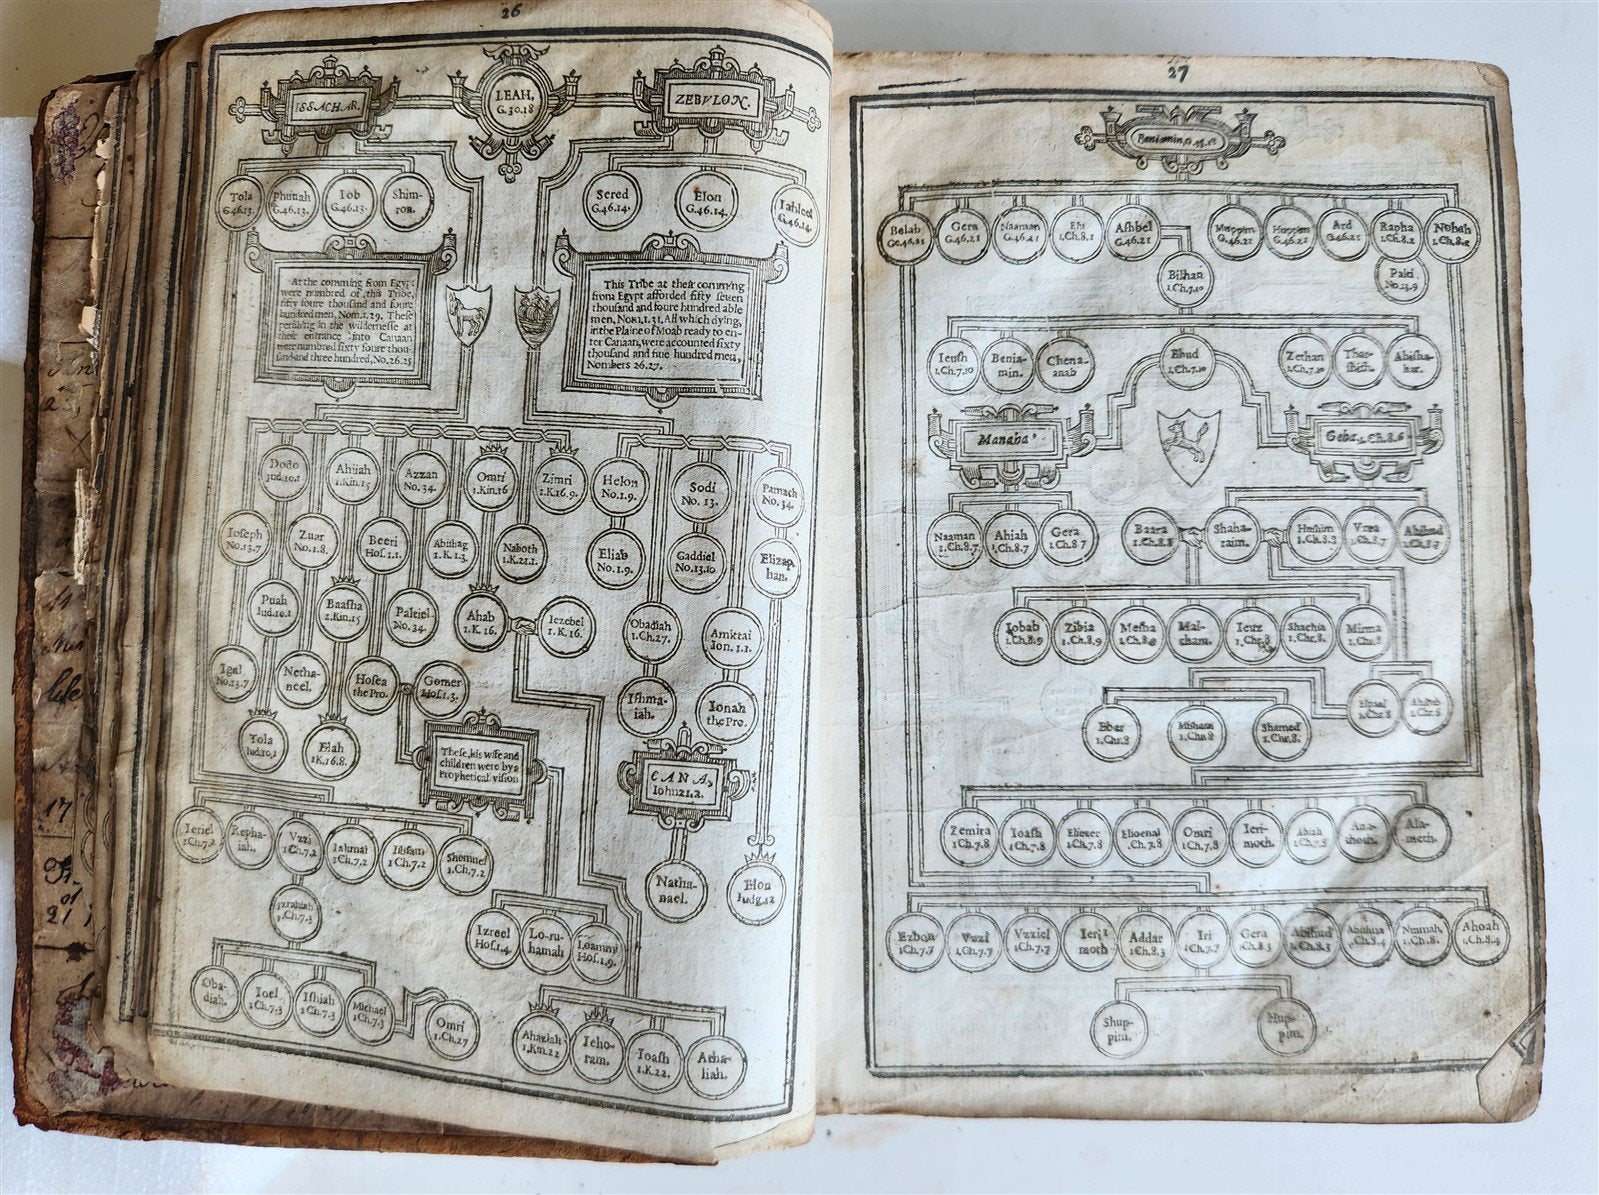 26
ISSACHAR.
LEAH.
G.30.18
ZEBVLON.
Tola
G.46.13.
Phuuah
G.46.13.
Iob
G.46.13.
Shim-
ron.
Sered
G.46.14.
Elon
G.46.14.
Iahleel
G.46.14.
At the comming from Egypt
were numbred of this Tribe,
fifty foure thousand and foure
hundred men, Nom.1.29. These
perishing in the wildernesse at
their entrance into Canaan
were numbred sixty foure thou-
sand and three hundred, No.26.25
This Tribe at their comming
from Egypt afforded fifty seuen
thousand and foure hundred able
men, Nom.1.31. All which dying,
in the Plaine of Moab ready to en-
ter Canaan, were accounted sixty
thousand and fiue hundred men,
Nombers 26.27.
Dodo
Iud.10.1
Ahijah
1.Kin.15
Azzan
No.34.
Omri
1.Kin.16
Zimri
1.K.16.9.
Helon
No.1.9.
Sodi
No. 13.
Parnach
No.34.
Ioseph
No.13.7
Zuar
No.1.8.
Beeri
Hos.1.1.
Abishag
1.K.1.3.
Naboth
1.K.21.1.
Eliab
No.1.9.
Gaddiel
No.13.10
Elizap
han.
Puah
Iud.10.1
Baasha
1.Kin.15
Paltiel
No.34.
Ahab
1.K.16.
Iezebel
1.K.16.
Obadiah
1.Ch.27.
Amittai
Ion.1.1.
Igal
No.13.7
Netha-
neel.
Hosea
the Pro.
Gomer
Hos.1.3.
Ishma-
iah.
Ionah
the Pro.
Tola
Iud.10.1
Elah
1K.16.8.
These, his wife and
children were by a
Prophetical vision
CANA,
Iohn 21.2.
Ieriel
1Ch.7.2
Repha-
iah.
Vzzi
1Ch.7.2
Iahmai
1Ch.7.2
Iibsam
1Ch.7.2
Shemuel
1.Ch.7.2
Natha-
nael.
Elon
Iudg.12
Izrahiah
1.Ch.7.3
Izreel
Hos.1.4
Lo-ru-
hamah
Loammi
Hos.1.9.
Oba-
diah.
Ioel
1Ch.7.3
Ishiah
1Ch.7.3
Michael
1Ch.7.3
Omri
1.Ch.27
Ahaziah
1.Kin.22
Ieho-
ram.
Ioash
1.K.22.
Atha-
liah.
27
Belah
Ge.46.21
Gera
G.46.21
Naaman
G.46.21
Ehi
1.Ch.8.1
Ashbel
G.46.21
Muppim
G.46.21
Huppim
G.46.21
Ard
G.46.21
Rapha
1.Ch.8.2
Nohah
1.Ch.8.2
Bilhan
1.Ch.7.10
Palti
No.13.9
Ieush
1.Ch.7.10
Benia-
min.
Chena-
anah
Ehud
1.Ch.7.10
Zethan
1.Ch.7.10
Thar-
shish.
Abisha-
har.
Manaha
Geba, 1.Ch.8.6
Naaman
1.Ch.8.7
Ahiah
1.Ch.8.7
Gera
1.Ch.8.7
Baara
1.Ch.8.8
Shaha-
raim.
Hushim
1.Ch.8.8
Vzza
1.Ch.8.7
Ahihud
1.Ch.8.7
Iobab
1.Ch.8.9
Zibia
1.Ch.8.9
Mesha
1.Ch.8.9
Mal-
cham.
Ieuz
1.Chr.8
Shachia
1.Chr.8.
Mirma
1.Chr.8
Elpaal
1.Chr.8
Ahitub
1.Chr.8
Eber
1.Chr.8
Misham
1.Chr.8
Shamed
1.Chr.8.
Zemira
1.Ch.7.8
Ioash
1Ch.7.8
Eliezer
1.Ch.7.8
Elioenai
1.Ch.7.8
Omri
1.Ch.7.8
Ieri-
moth.
Abiah
1.Ch.7.8
Ana-
thoth.
Ala-
meth.
Ezbon
1Ch.7.7
Vzzi
1.Ch.7.7
Vzziel
1Ch.7.7
Ieri
moth
Addar
1Ch.8.3
Iri
1Ch.7.7
Gera
1.Ch.8.3
Abihud
1.Ch.8.3
Abishua
1.Ch.8.4
Neamah
1.Ch.8.
Ahoah
1.Ch.8.4
Shup-
pim.
Hup-
pim.